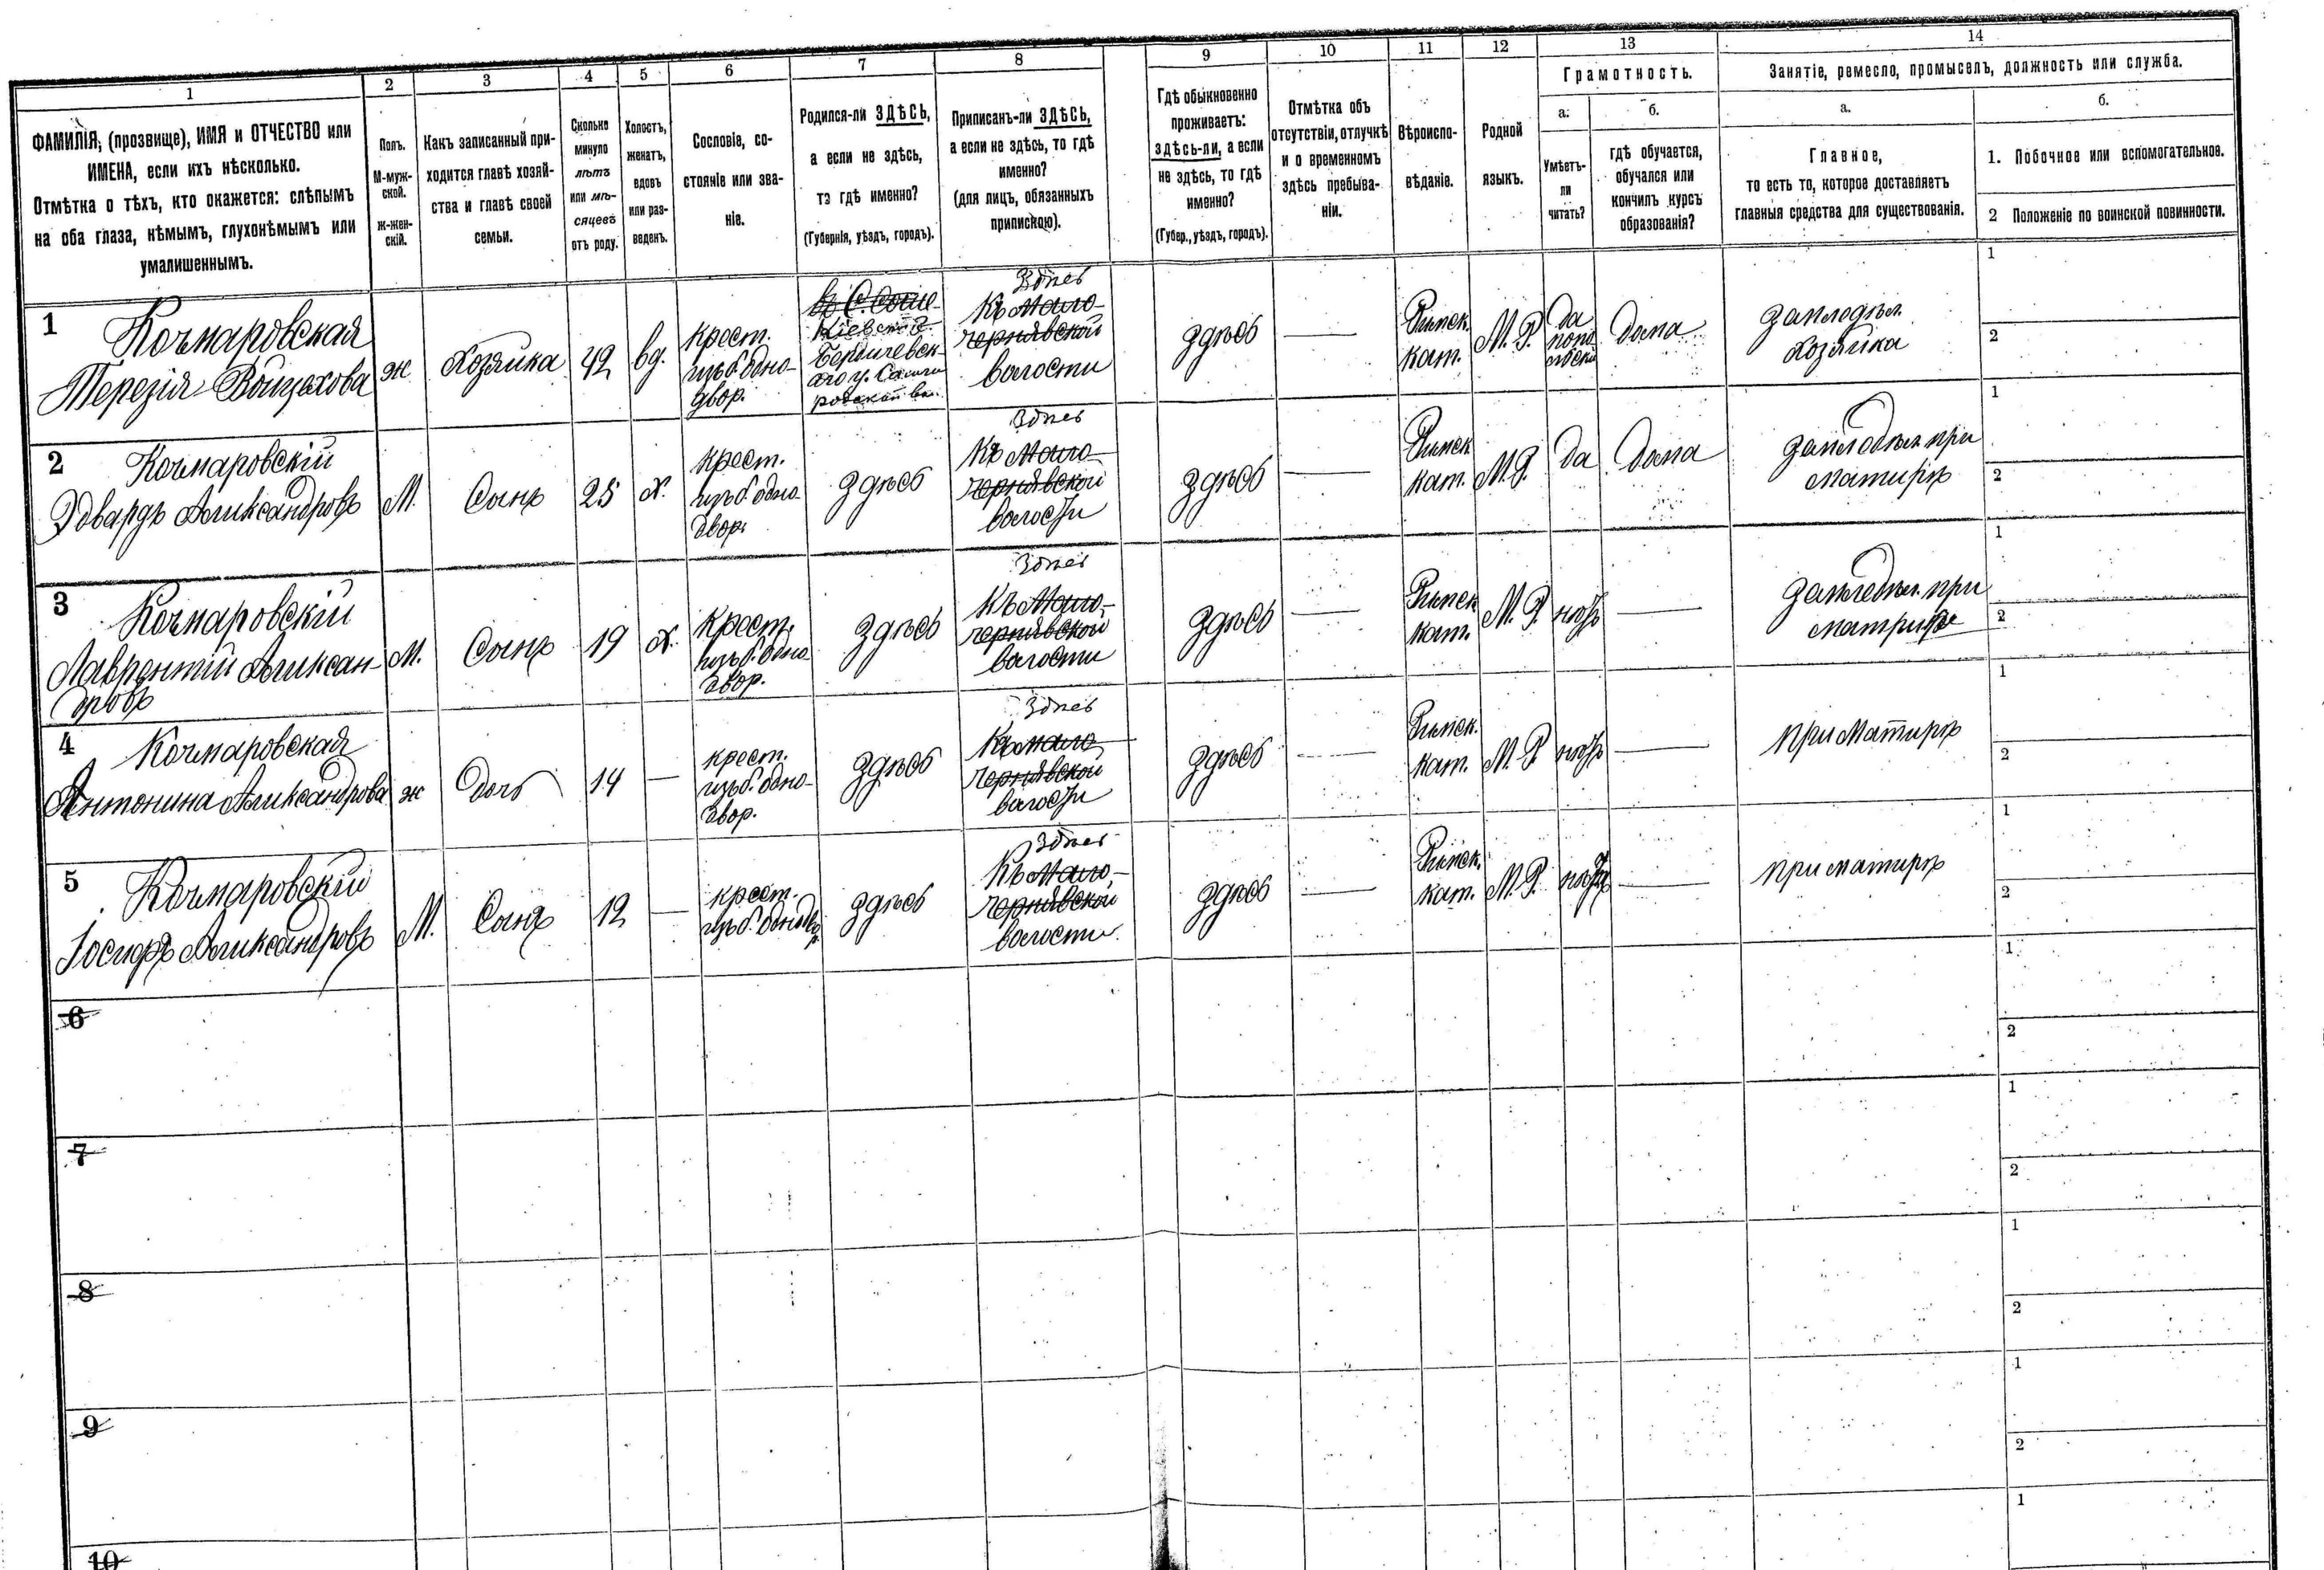 1
2
3
4
5
6
7
8
9
10
11
12
13
14
ФАМИЛІЯ, (прозвище), ИМЯ и ОТЧЕСТВО или
ИМЕНА, если ихъ нѣсколько.
Отмѣтка о тѣхъ, кто окажется: слѣпымъ
на оба глаза, нѣмымъ, глухонѣмымъ или
умалишеннымъ.
Полъ.
М-муж-
ской.
Ж-жен-
скій.
Какъ записанный при-
ходится главѣ хозяй-
ства и главѣ своей
семьи.
Сколько
минуло
лѣтъ
или мѣ-
сяцевъ
отъ роду.
Холостъ,
женатъ,
вдовъ
или раз-
веденъ.
Сословіе, со-
стояніе или зва-
ніе.
Родился-ли ЗДѢСЬ,
а если не здѣсь,
то гдѣ именно?
(Губернія, уѣздъ, городъ).
Приписанъ-ли ЗДѢСЬ,
а если не здѣсь, то гдѣ
именно?
(для лицъ, обязанныхъ
припискою).
Гдѣ обыкновенно
проживаетъ:
здѣсь-ли, а если
не здѣсь, то гдѣ
именно?
(Губер., уѣздъ, городъ).
Отмѣтка объ
отсутствіи, отлучкѣ
и о временномъ
здѣсь пребыва-
ніи.
Вѣроиспо-
вѣданіе.
Родной
языкъ.
Грамотность.
а.
Умѣетъ-
ли
читать?
б.
гдѣ обучается,
обучался или
кончилъ курсъ
образованія?
Занятіе, ремесло, промыселъ, должность или служба.
а.
Главное,
то есть то, которое доставляетъ
главныя средства для существованія.
б.
1. Побочное или вспомогательное.
2 Положеніе по воинской повинности.
1
Кочмаровская
Терезія Войцехова
ж
Хозяйка
42
вд.
крест.
изъ б. одно-
двор.
Кіевской
Бердичевск-
аго у.
Здѣсь
Къ Мало-
чернявской
волости
здѣсь
—
Римск.
кат.
М. Р.
да
дома
земледѣл.
хозяйка
1
2
2
Кочмаровскій
Эдвардъ Аликсандровъ
М.
Сынъ
25
х.
крест.
изъ б. одно-
двор.
здѣсь
Здѣсь
Къ Мало-
чернявской
волости
здѣсь
—
Римск.
кат.
М. Р.
да
дома
земледѣл. при
матирѣ
1
2
3
Кочмаровскій
Лаврентій Аликсан-
дровъ
М.
Сынъ
19
х.
крест.
изъ б. одно-
двор.
здѣсь
Здѣсь
Къ Мало-
чернявской
волости
здѣсь
—
Римск.
кат.
М. Р.
нѣтъ
—
земледѣл. при
1
2
4
Кочмаровская
Антонина Аликсандрова
ж
Дочь
14
—
крест.
изъ б. одно-
двор.
здѣсь
Здѣсь
Къ Мало-
чернявской
волости
здѣсь
—
Римск.
кат.
М. Р.
нѣтъ
—
при Матирѣ
1
2
5
Кочмаровскій
Іосифъ Аликсандровъ
М.
Сынъ
12
—
крест.
изъ б. однодвор.
здѣсь
Здѣсь
Къ Мало-
чернявской
волости.
здѣсь
—
Римск.
кат.
М. Р.
нѣтъ
—
при матирѣ
1
2
6
1
2
7
1
2
8
1
2
9
1
2
10
1